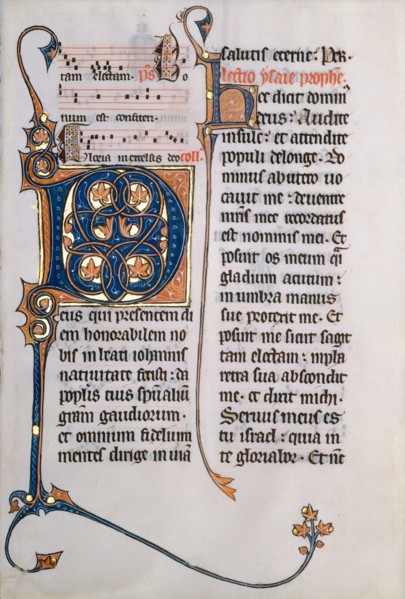 tam electam. ps Bo
num est confiteri.
Gloria in excelsis deo coll.
Deus qui presentem di
em honorabilem no
bis in beati iohannis
natiuitate fecisti: da
pplis tuis spualiu
gram gaudiorum.
et omnium fidelium
mentes dirige in uia
salutis eterne. Per.
lectio ysaie prophe.
Hec dicit domin
deus: Audite
insule: et attendite
populi de longe. Do
minus ab utero uo
cauit me: de uentre
mris mee recordatus
est nominis mei. Et
posuit os meum qi
gladium acutum:
in umbra manus
sue protexit me. Et
posuit me sicut sagit
tam electam: in pha
retra sua abscondit
me. et dixit michi.
Seruus meus es
tu israel: quia in
te gloriabor. Et nuc